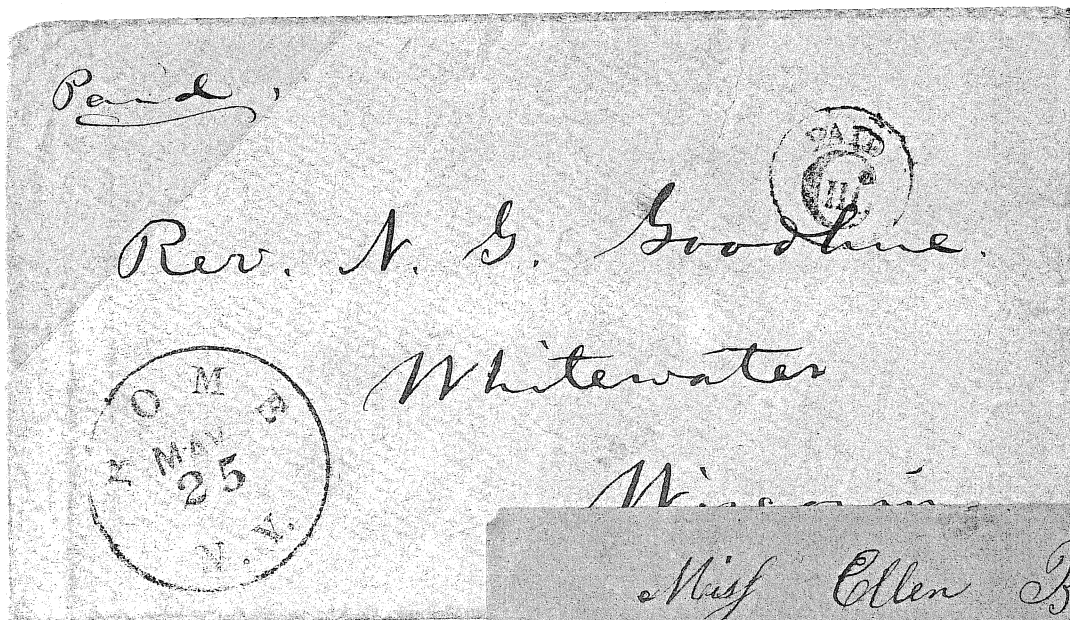 Paid.
PAID
III
Rev. N. G. Goodhue.
Whitewater
Wisconsin
ROME
MAY
25
N.Y.
Miss Ellen B